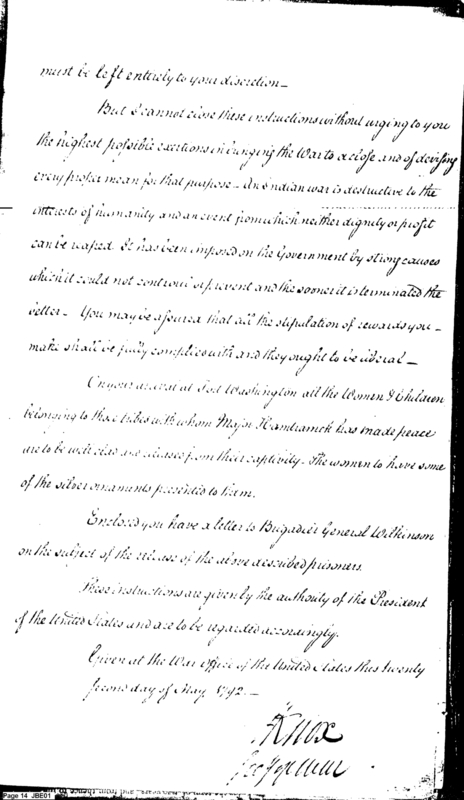 must be left entirely to your discretion_
But I cannot close these instructions without urging to you
the highest possible exertions in bringing the War to a close and of devising
every proper mean for that purpose_ An Indian war is destructive to the
interests of humanity and an event from which neither dignity or profit
can be reaped. It has been imposed on the Government by strong causes
which it could not controul or prevent and the sooner it is terminated the
better_ You may be assured that all the stipulation of rewards you_
make shall be fully complied with and they ought to be liberal_
On your arrival at Fort Washington all the Women & Children
belonging to those tribes with whom Major Hamtramck has made peace
are to be well clad and released from their captivity. The women to have some
of the silver ornaments presented to them.
Enclosed you have a letter to Brigadier General Wilkinson
on the subject of the release of the above described prisoners.
These instructions are given by the authority of the President
of the United States and are to be regarded accordingly.
Given at the War Office of the United States this twenty
second day of May 1792._
HKnox
Secy of War
Page 14 JBE01